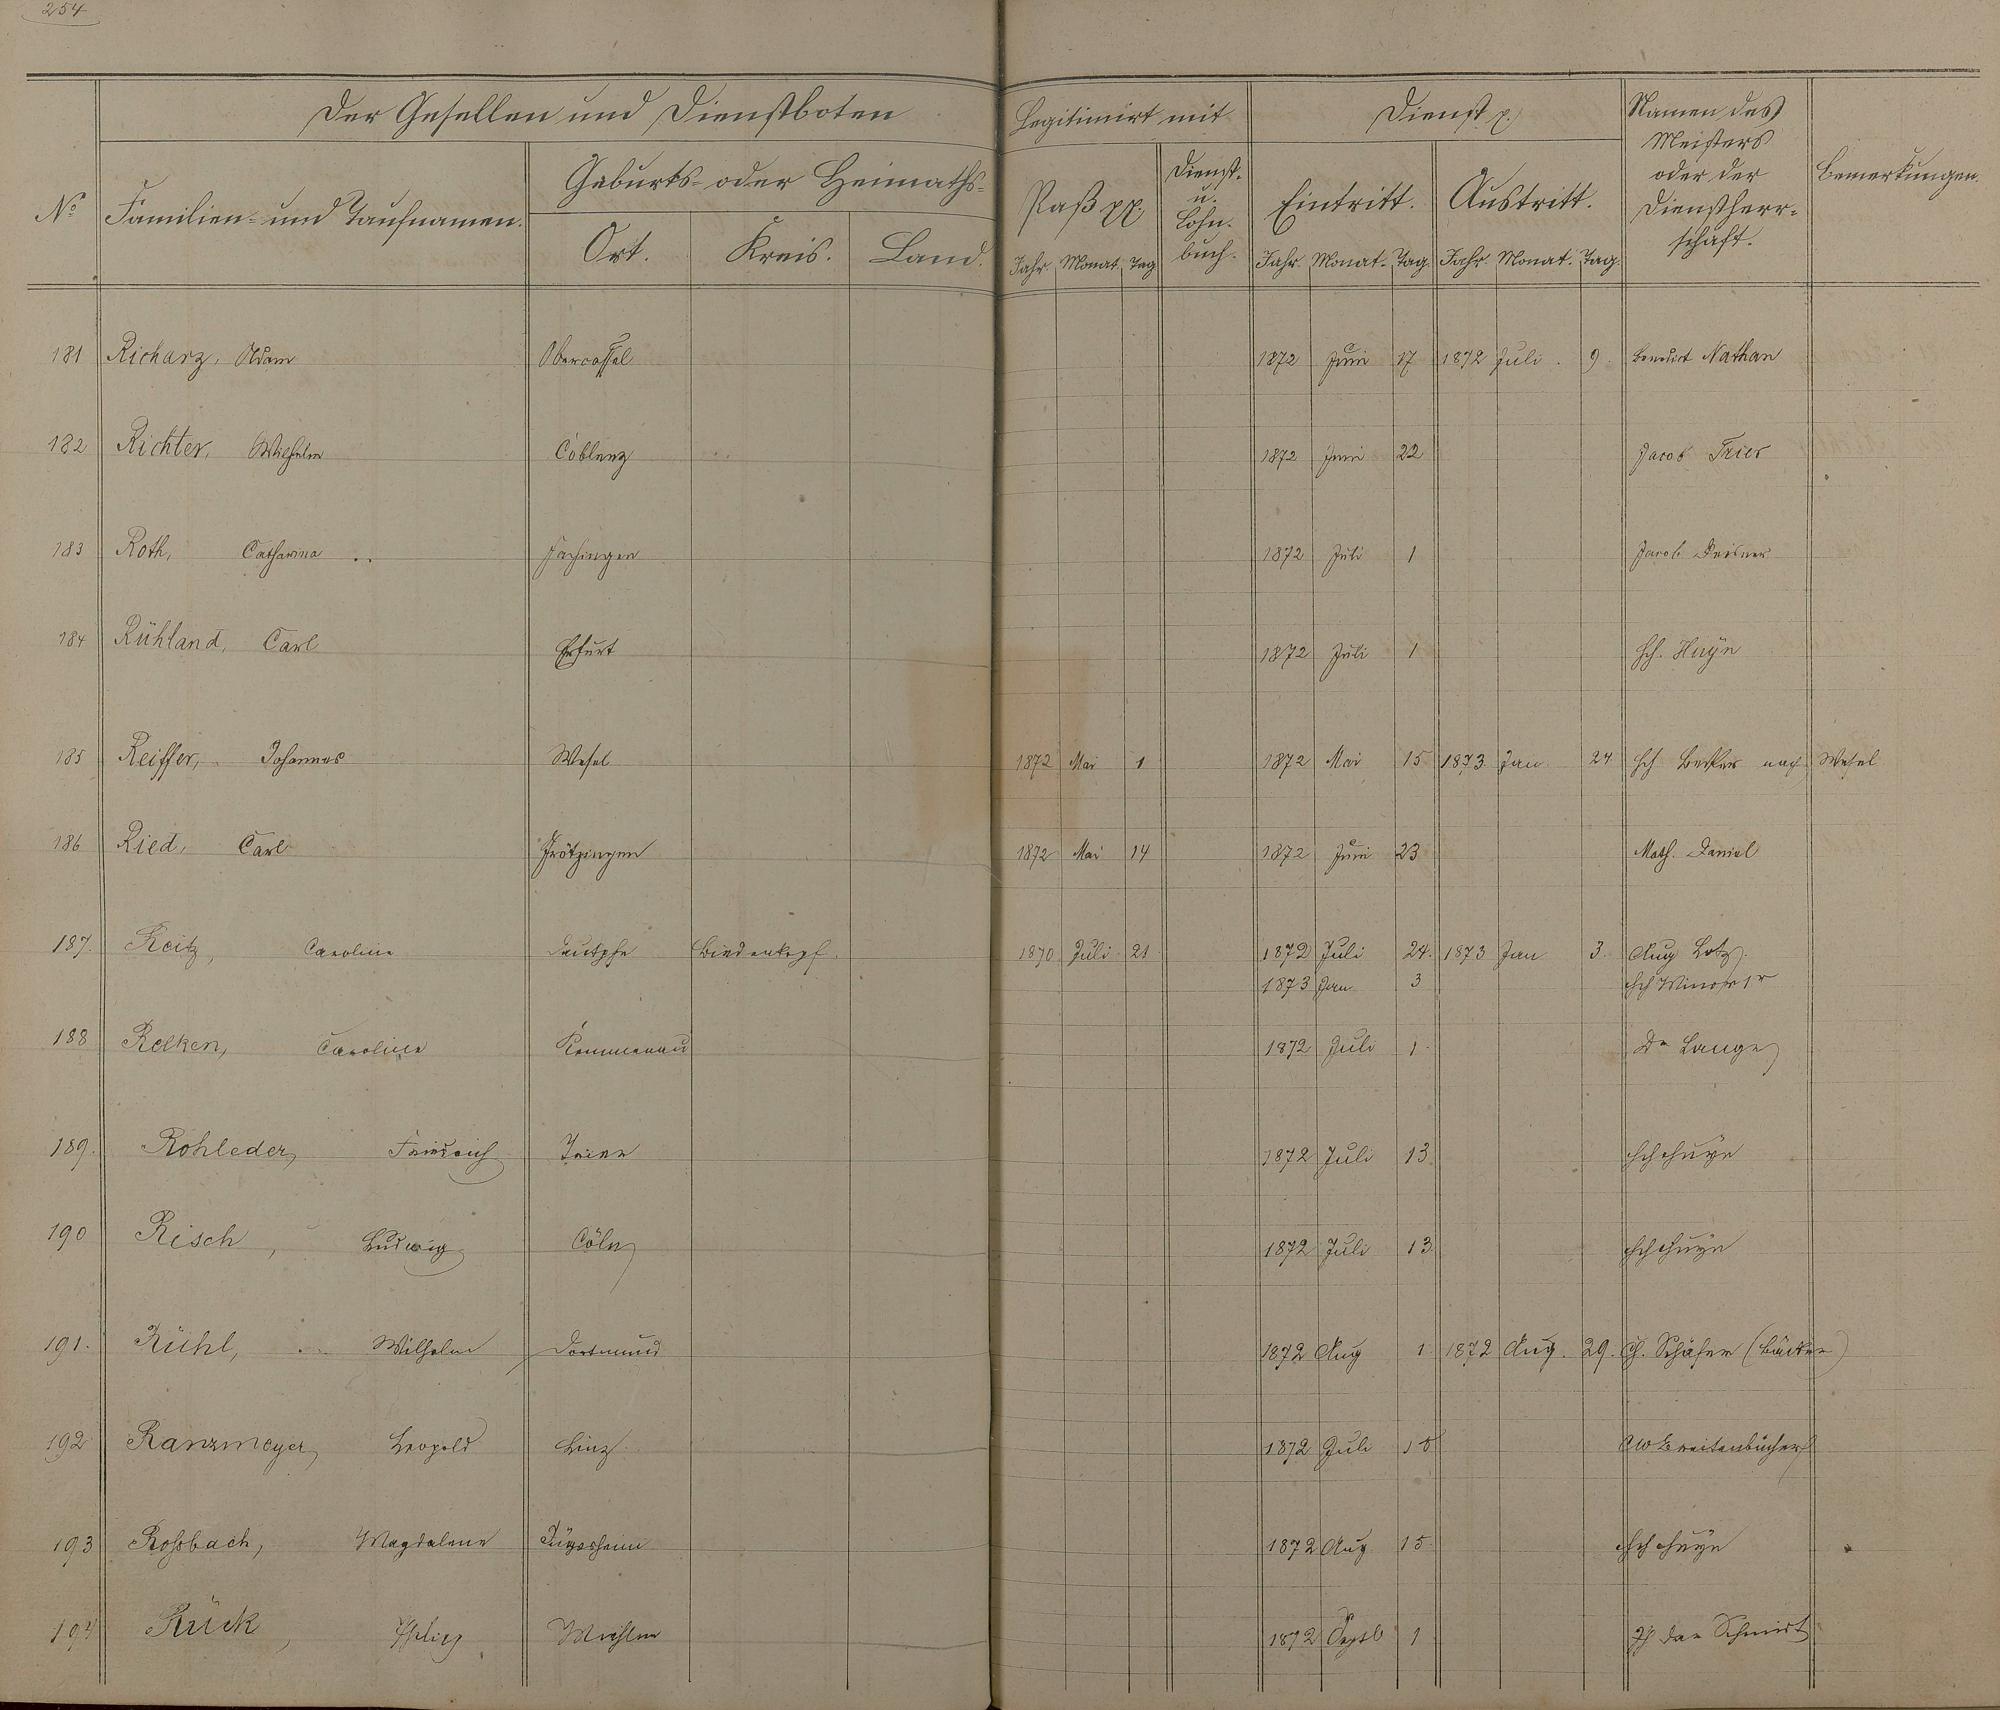 254
Der Gesellen und Dienstboten
Legitimirt mit
Dienst p.
Namen des Meisters oder der Dienstherrschaft.
Bemerkungen.
No
Familien- und Taufnamen.
Geburts- oder Heimaths-
Paß pp.
Dienst- u. Lohn-buch.
Eintritt.
Austritt.
Ort. Kreis. Land.
Jahr. Monat. Tag
Jahr. Monat. Tag.
Jahr. Monat. Tag.
181 Richarz, Adam Obercassel 1872 Juni 17 1872 Juli 9. Benedict Nathan
182 Richter, Wilhelm Coblenz 1872 Juni 22 Jacob Trier
183 Roth, Catharina Fachingen 1872 Juli 1 Jacob
184 Rühland, Carl Erfurt 1872 Juli 1 Hch. Huyn
185 Reiffer, Johannes Wesel 1872 Mai 1 1872 Mai 15 1873 Jan. 24 Hch Becker nach Wesel
186 Ried, Carl 1872 Mai 14 1872 Juni 23 Math. Daniel
187. Reitz, Caroline Dautphe Biedenkopf. 1870 Juli 21 1872 Juli 24. 1873 Jan 3. Aug Lotz.
1873 Jan 3 Hch
188 Relken, Caroline Kemmenau 1872 Juli 1 Dr Lange
189. Rohleder, Friedrich Trier 1872 Juli 13 Hch Huyn
190 Risch, Ludwig Cöln 1872 Juli 13. Hch Huyn
191. Rühl, Wilhelm Dortmund 1872 Aug 1 1872 Aug. 29. Ch. Schäfer (Bäcker)
192 Ranzmeyer, Leopold Linz 1872 Juli 15 CW Breitenbücher
193 Roßbach, Magdalene Jügesheim 1872 Aug 15. Hch Huyn
194 Rück, Philipp Miehlen 1872 Septb 1 Schmidt